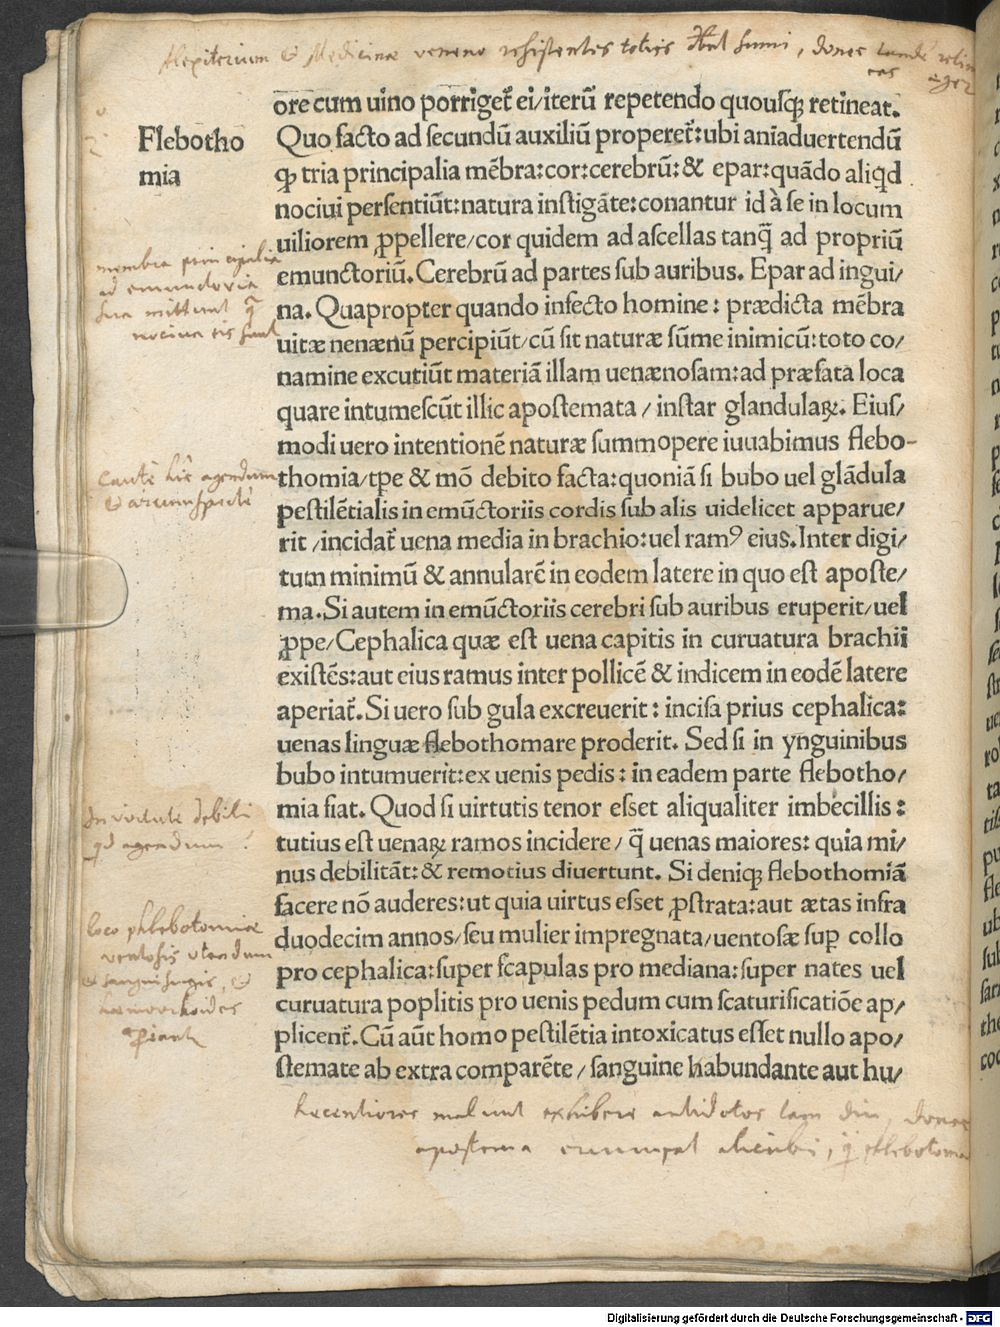 Alexiterium & Medicinae veneno resistentes toties debet sumi, donec tandem
eas
ore cum uino porriget᷑ ei/iterũ repetendo quousqꝫ retineat.
Flebotho
mia
Quo facto ad secundũ auxiliũ properet᷑: ubi anĩaduertendũ
ꝙ tria principalia mẽbra: cor: cerebrũ: & epar: quãdo aliqd
nociui persentiũt: natura instigãte: conantur id à se in locum
uiliorem ꝓpellere/cor quidem ad ascellas tanq̃ ad propriũ
emunctoriũ. Cerebrũ ad partes sub auribus. Epar ad ingui/
na. Quapropter quando infecto homine: prædicta mẽbra
uitæ nenænũ percipiũt/cũ sit naturæ sũme inimicũ: toto co/
namine excutiũt materiã illam uenænosam: ad præfata loca
quare intumescũt illic apostemata/instar glandulaꝝ. Eius/
modi uero intentionẽ naturæ summopere iuuabimus flebo-
thomia/tp̃e & mõ debito facta: quoniã si bubo uel glãdula
pestilẽtialis in emũctoriis cordis sub alis uidelicet apparue/
rit/incidat᷑ uena media in brachio: uel ramꝰ eius. Inter digi/
tum minimũ & annularẽ in eodem latere in quo est aposte/
ma. Si autem in emũctoriis cerebri sub auribus eruperit/uel
ꝓpe/Cephalica quæ est uena capitis in curuatura brachii
existẽs: aut eius ramus inter pollicẽ & indicem in eodẽ latere
aperiat᷑. Si uero sub gula excreuerit: incisa prius cephalica:
uenas linguæ flebothomare proderit. Sed si in ynguinibus
bubo intumuerit: ex uenis pedis: in eadem parte flebotho/
mia fiat. Quod si uirtutis tenor esset aliqualiter imbecillis:
tutius est uenaꝝ ramos incidere/q̃ uenas maiores: quia mi/
nus debilitãt: & remotius diuertunt. Si deniqꝫ flebothomiã
facere nõ auderes: ut quia uirtus esset ꝓstrata: aut ætas infra
duodecim annos/seu mulier impregnata/uentosæ suꝑ collo
pro cephalica: super scapulas pro mediana: super nates uel
curuatura poplitis pro uenis pedum cum scaturisicatiõe ap/
plicent᷑. Cũ aũt homo pestilẽtia intoxicatus esset nullo apo/
stemate ab extra comparẽte/sanguine habundante aut hu/
membra principalia
ad emunctoria
sua mittunt q̃
nociua eis sunt
Cautè hic agendum
& circumspectè
In virtute debili
qd agendum?
loco phlebotomiae
ventosis utendum
& sanguisugis, &
haemorrhoides
Recentiores malunt exhibere antidotos tam diu, donec
apostema erumpat alicubi, q̃ phlebotoma
Digitalisierung gefördert durch die Deutsche Forschungsgemeinschaft - DFG